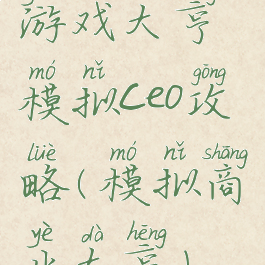 游戏大亨
mó nǐ gōng
模拟ceo攻
lüè mó nǐ shāng
略(模拟商
yè dà hēng
业大亨)